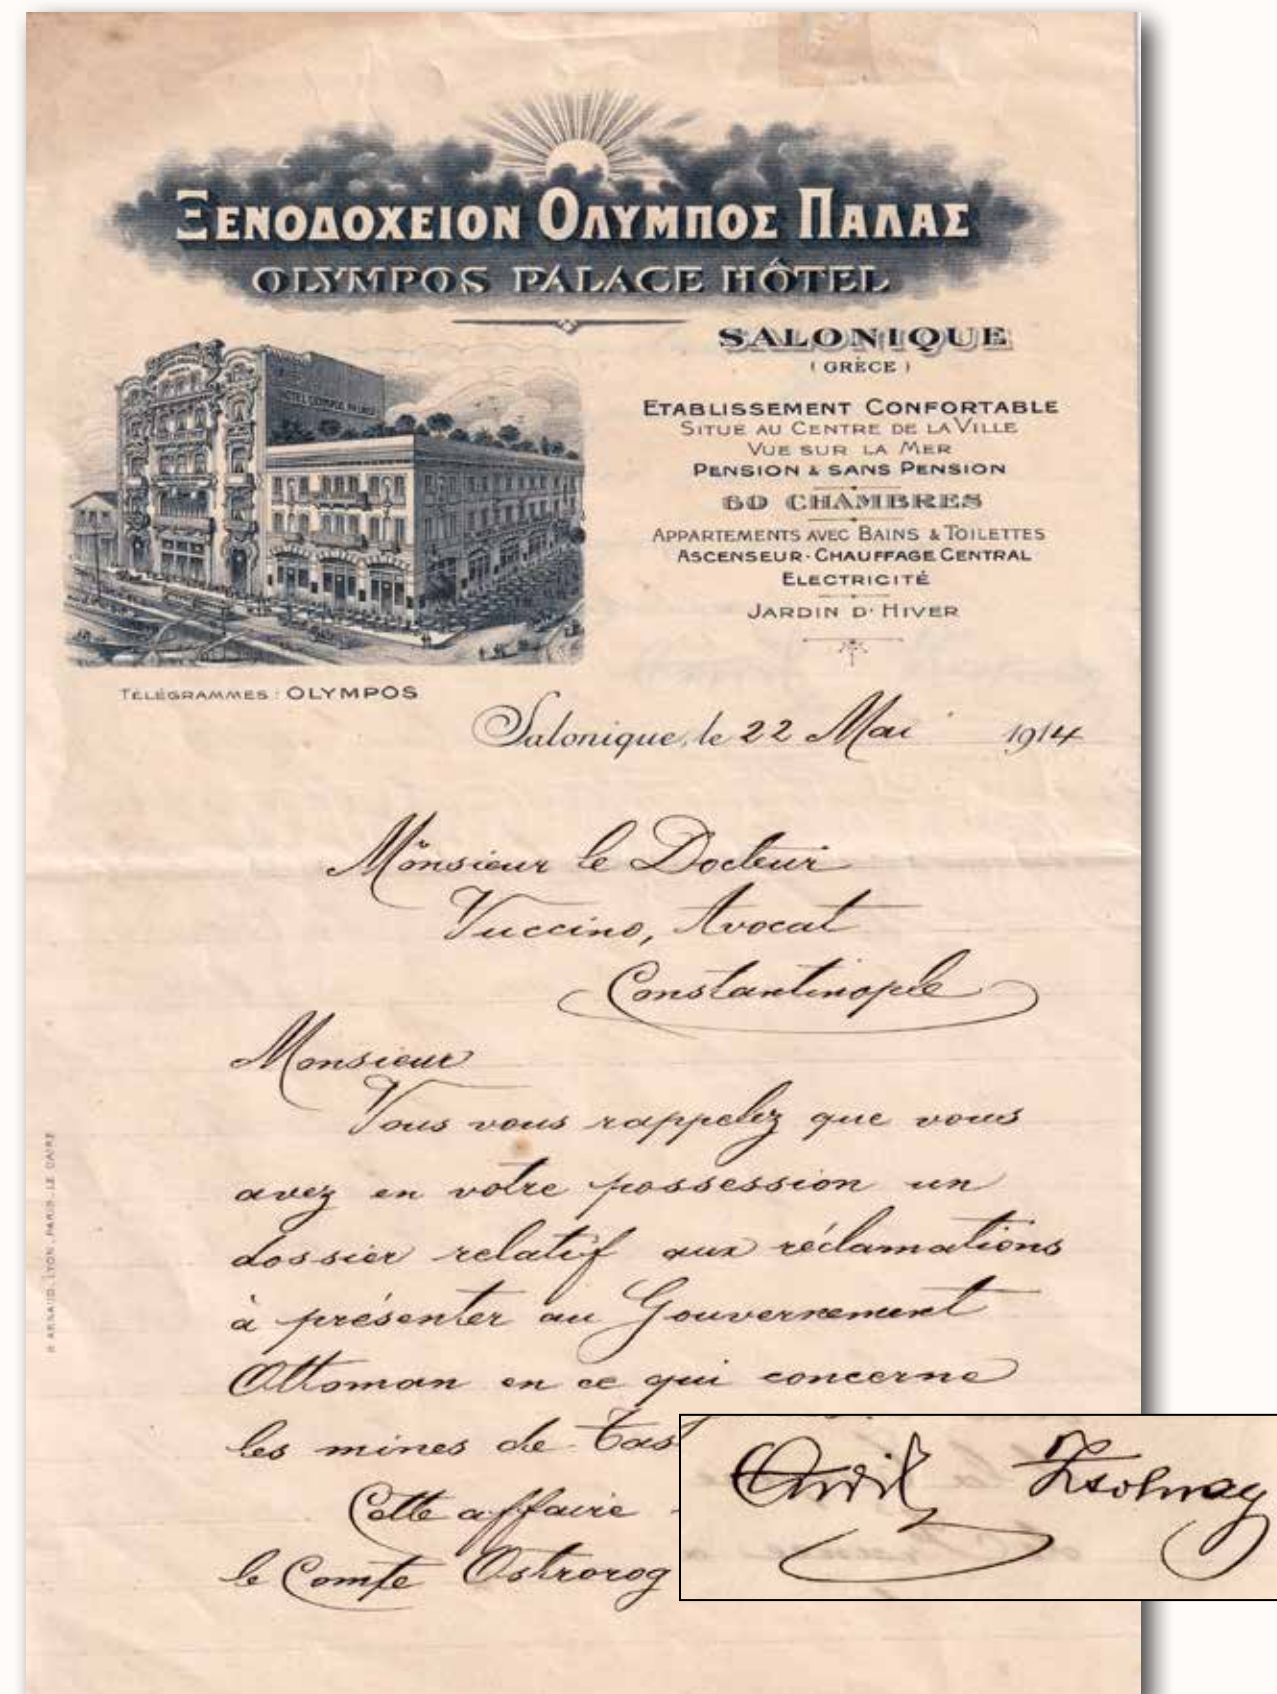 ΞΕΝΟΔΟΧΕΙΟΝ ΟΛΥΜΠΟΣ ΠΑΛΑΣ
OLYMPOS PALACE HÔTEL
SALONIQUE
(GRÈCE)
ETABLISSEMENT CONFORTABLE
SITUE AU CENTRE DE LA VILLE
VUE SUR LA MER
PENSION & SANS PENSION
60 CHAMBRES
APPARTEMENTS AVEC BAINS & TOILETTES
ASCENSEUR · CHAUFFAGE CENTRAL
ELECTRICITÉ
JARDIN D'HIVER
HOTEL OLYMPOS PALACE
TÉLÉGRAMMES : OLYMPOS
Salonique, le 22 Mai 1914
Monsieur le Docteur
Vuccino, Avocat
Constantinople
Monsieur
Vous vous rappelez que vous
avez en votre possession un
dossier relatif aux réclamations
à présenter au Gouvernement
Ottoman en ce qui concerne
les mines de Tas
Cette affaire
le Comte Ostrorog
Zsolnay
R. ARNAUD. LYON. PARIS. LE CAIRE